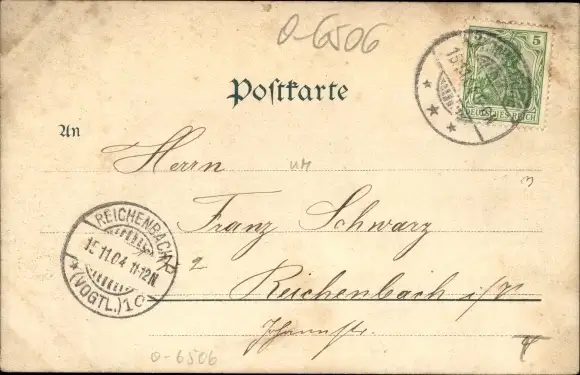 0-6506
5
DEUTSCHES REICH
Postkarte
An
Herrn
um
Franz Schwarz
2
Reichenbach i/V
Johannstr.
REICHENBACH
15.11.04 11-12N.
* (VOGTL.) 1c
0-6506